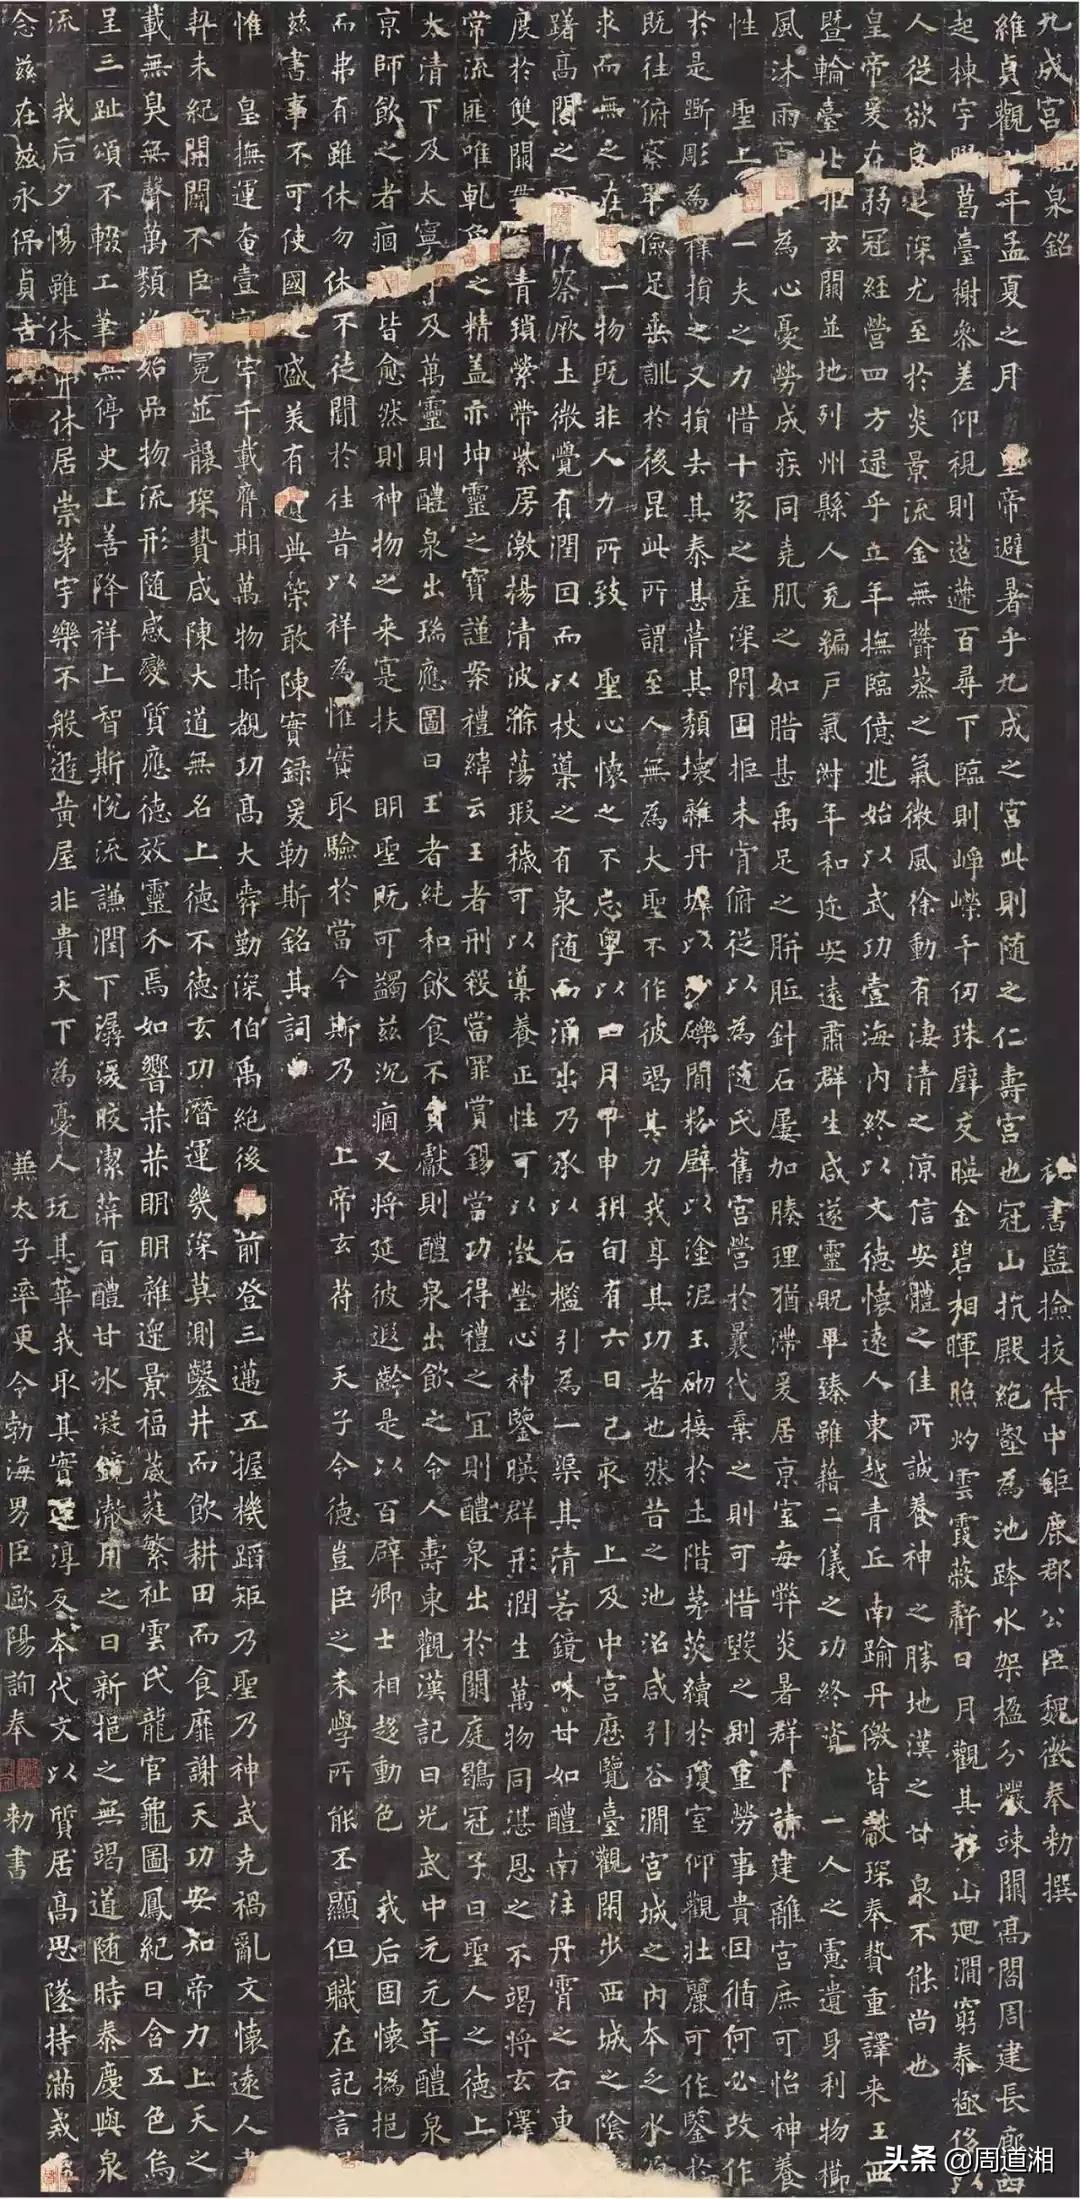 九成宮泉銘 秘書監撿挍侍中鉅鹿郡公臣魏徵奉勅撰
維貞觀年孟夏之月 皇帝避暑乎九成之宮此則隨之仁壽宮也冠山抗殿絕壑為池跨水架楹分巖竦闕高閣周建長廊四
起棟宇膠葛臺榭參差仰視則迢遰百尋下臨則崢嶸千仞珠璧交暎金碧相暉照灼雲霞蔽虧日月觀其移山迴澗窮泰極侈以
人從欲良足深尤至於炎景流金無欝蒸之氣微風徐動有淒清之涼信安體之佳所誠養神之勝地漢之甘泉不能尚也
皇帝爰在弱冠經營四方逮乎立年撫臨億兆始以武功壹海內終以文德懷遠人東越青丘南踰丹儌皆獻琛奉贄重譯来王西
暨輪臺北拒玄闕並地列州縣人充編戶氣淑年和迩安遠肅群生咸遂靈貺畢臻雖藉二儀之功終資 一人之慮遺身利物櫛
風沐雨百為心憂勞成疾同堯肌之如腊甚禹足之胼胝針石屢加腠理猶滯爰居京室每弊炎暑群下請建離宮庶可怡神養
性 聖上一夫之力惜十家之產深閉固拒未肯俯從以為隨氏舊宮營於曩代棄之則可惜毀之則重勞事貴因循何必改作
於是斲彫為樸損之又損去其泰甚葺其頹壞雜丹墀以沙礫間粉壁以塗泥玉砌接於土階茅茨續於瓊室仰觀壯麗可作鑒於
既往俯察卑儉足垂訓於後昆此所謂至人無為大聖不作彼竭其力我享其功者也然昔之池沼咸引谷澗宮城之內本乏水源
求而無之在一物既非人力所致 聖心懷之不忘粵以四月甲申朔旬有六日己亥 上及中宮歷覽臺觀閑步西城之陰
躊高閣之察厥土微覺有潤因而以杖導之有泉随而涌出乃承以石檻引為一渠其清若鏡味甘如醴南注丹霄之右東
度於雙闕貫青瑣縈帶紫房激揚清波滌蕩瑕穢可以導養正性可以瀓瑩心神鑒暎群形潤生萬物同湛恩之不竭将玄澤
常流匪唯乹象之精盖亦坤靈之寶謹案禮緯云王者刑殺當罪賞錫當功得禮之宜則醴泉出於闕庭鶡冠子曰聖人之德上
太清下及太寧下及萬靈則醴泉出瑞應圖曰王者純和飲食不貢獻則醴泉出飲之令人壽東觀漢記曰光武中元元年醴泉
京師飲之者痼皆愈然則神物之来寔扶 明聖既可蠲茲沉痼又将延彼遐齡是以百辟卿士相趍動色 我后固懷撝挹
而弗有雖休勿休不徒聞於往昔以祥為惟實取驗於當今斯乃 上帝玄苻 天子令德豈臣之末學所能丕顯但職在記言
茲書事不可使國之盛美有遺典策敢陳實錄爰勒斯銘其詞曰
惟 皇撫運奄壹寰宇千載膺期萬物斯覩功高大舜勤深伯禹絕後前登三邁五握機蹈矩乃聖乃神武克禍亂文懷遠人書
契未紀開闢不臣冠冕並襲琛贄咸陳大道無名上德不德玄功潛運幾深莫測鑿井而飲耕田而食靡謝天功安知帝力上天之
載無臭無聲萬類資始品物流形随感變質應德效靈介焉如響赫赫明明雜遝景福葳蕤繁祉雲氏龍官龜圖鳳紀日含五色烏
呈三趾頌不輟工筆無停史上善降祥上智斯悅流謙潤下潺湲皎潔蓱旨醴甘冰凝鏡澈用之日新挹之無竭道随時泰慶與泉
流 我后夕惕雖休弗休居崇茅宇樂不般遊黄屋非貴天下為憂人玩其華我取其實還淳反本代文以質居高思墜持滿戒
念茲在茲永保貞吉 兼太子率更令勃海男臣歐陽詢奉 勅書
头条 @周道湘